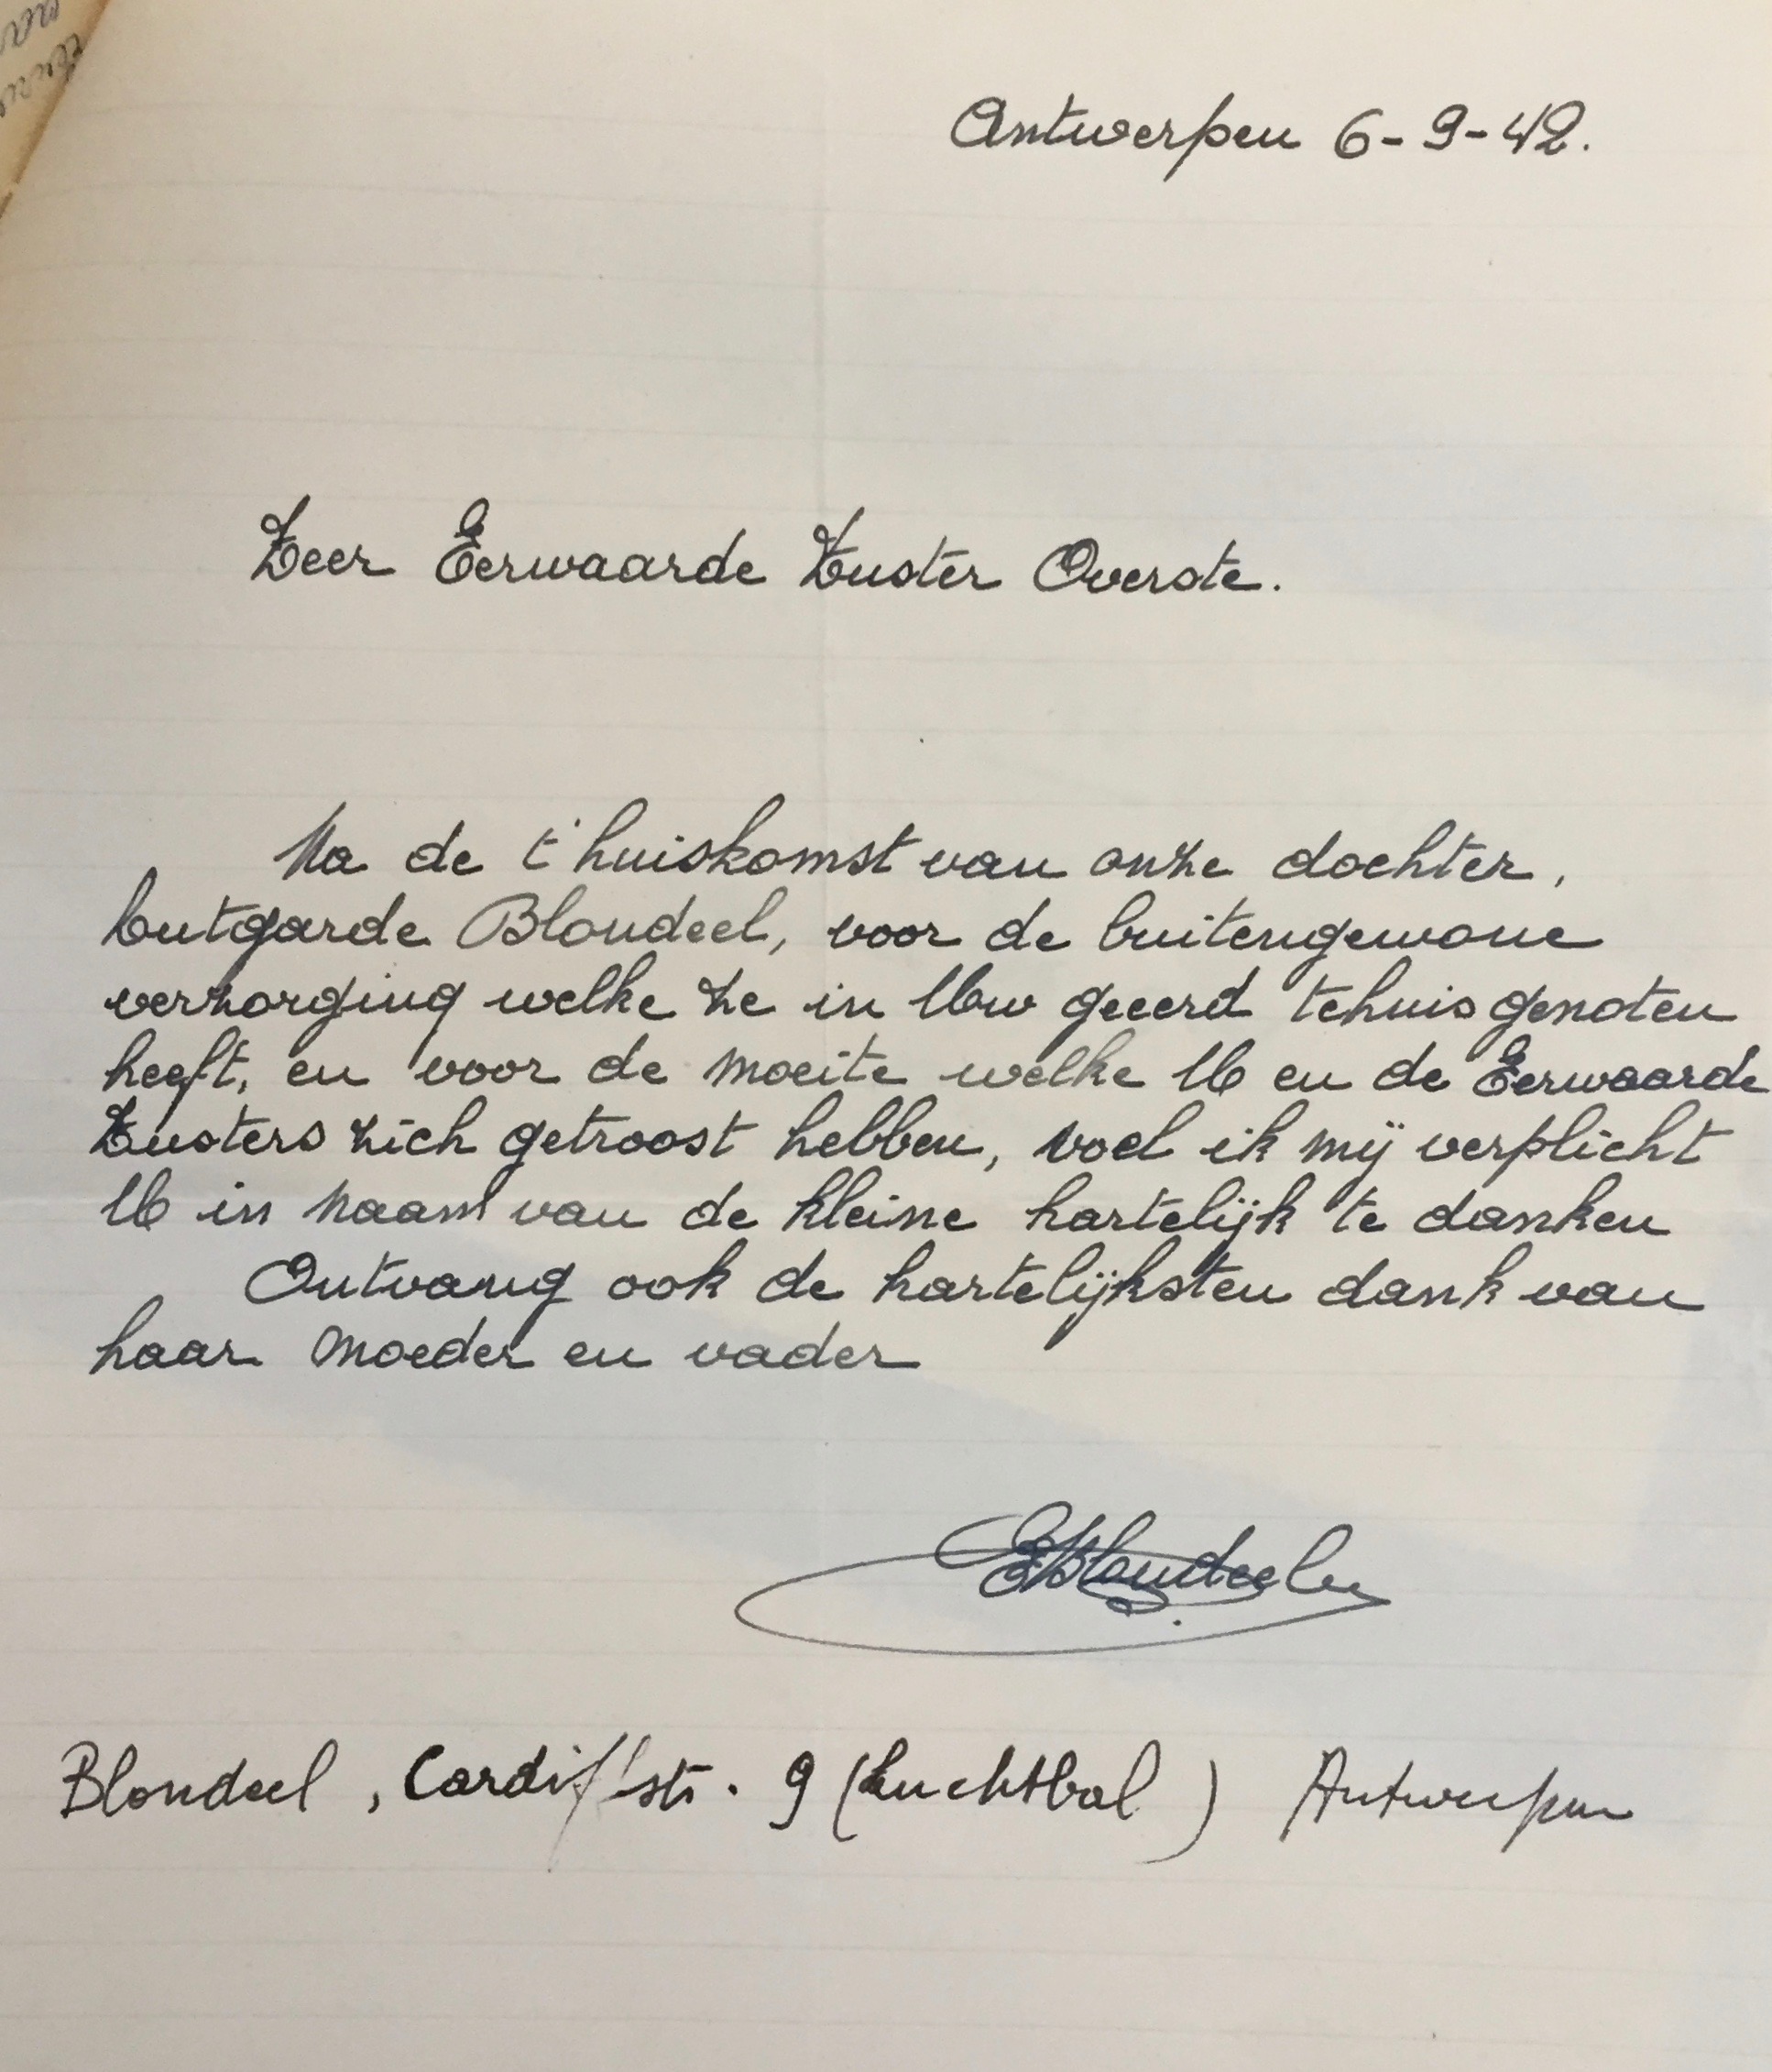 Antwerpen 6-9-42.
Zeer Eerwaarde Zuster Overste.
Na de t'huiskomst van onze dochter,
Lutgarde Blondeel, voor de buitengewone
verzorging welke ze in Uw geeerd tehuis genoten
heeft, en voor de moeite welke U en de Eerwaarde
Zusters zich getroost hebben, voel ik mij verplicht
U in naam van de kleine hartelijk te danken
Ontvang ook de hartelijksten dank van
haar moeder en vader
EBlondeel
Blondeel, Cardifstr. 9 (Luchtbal) Antwerpen